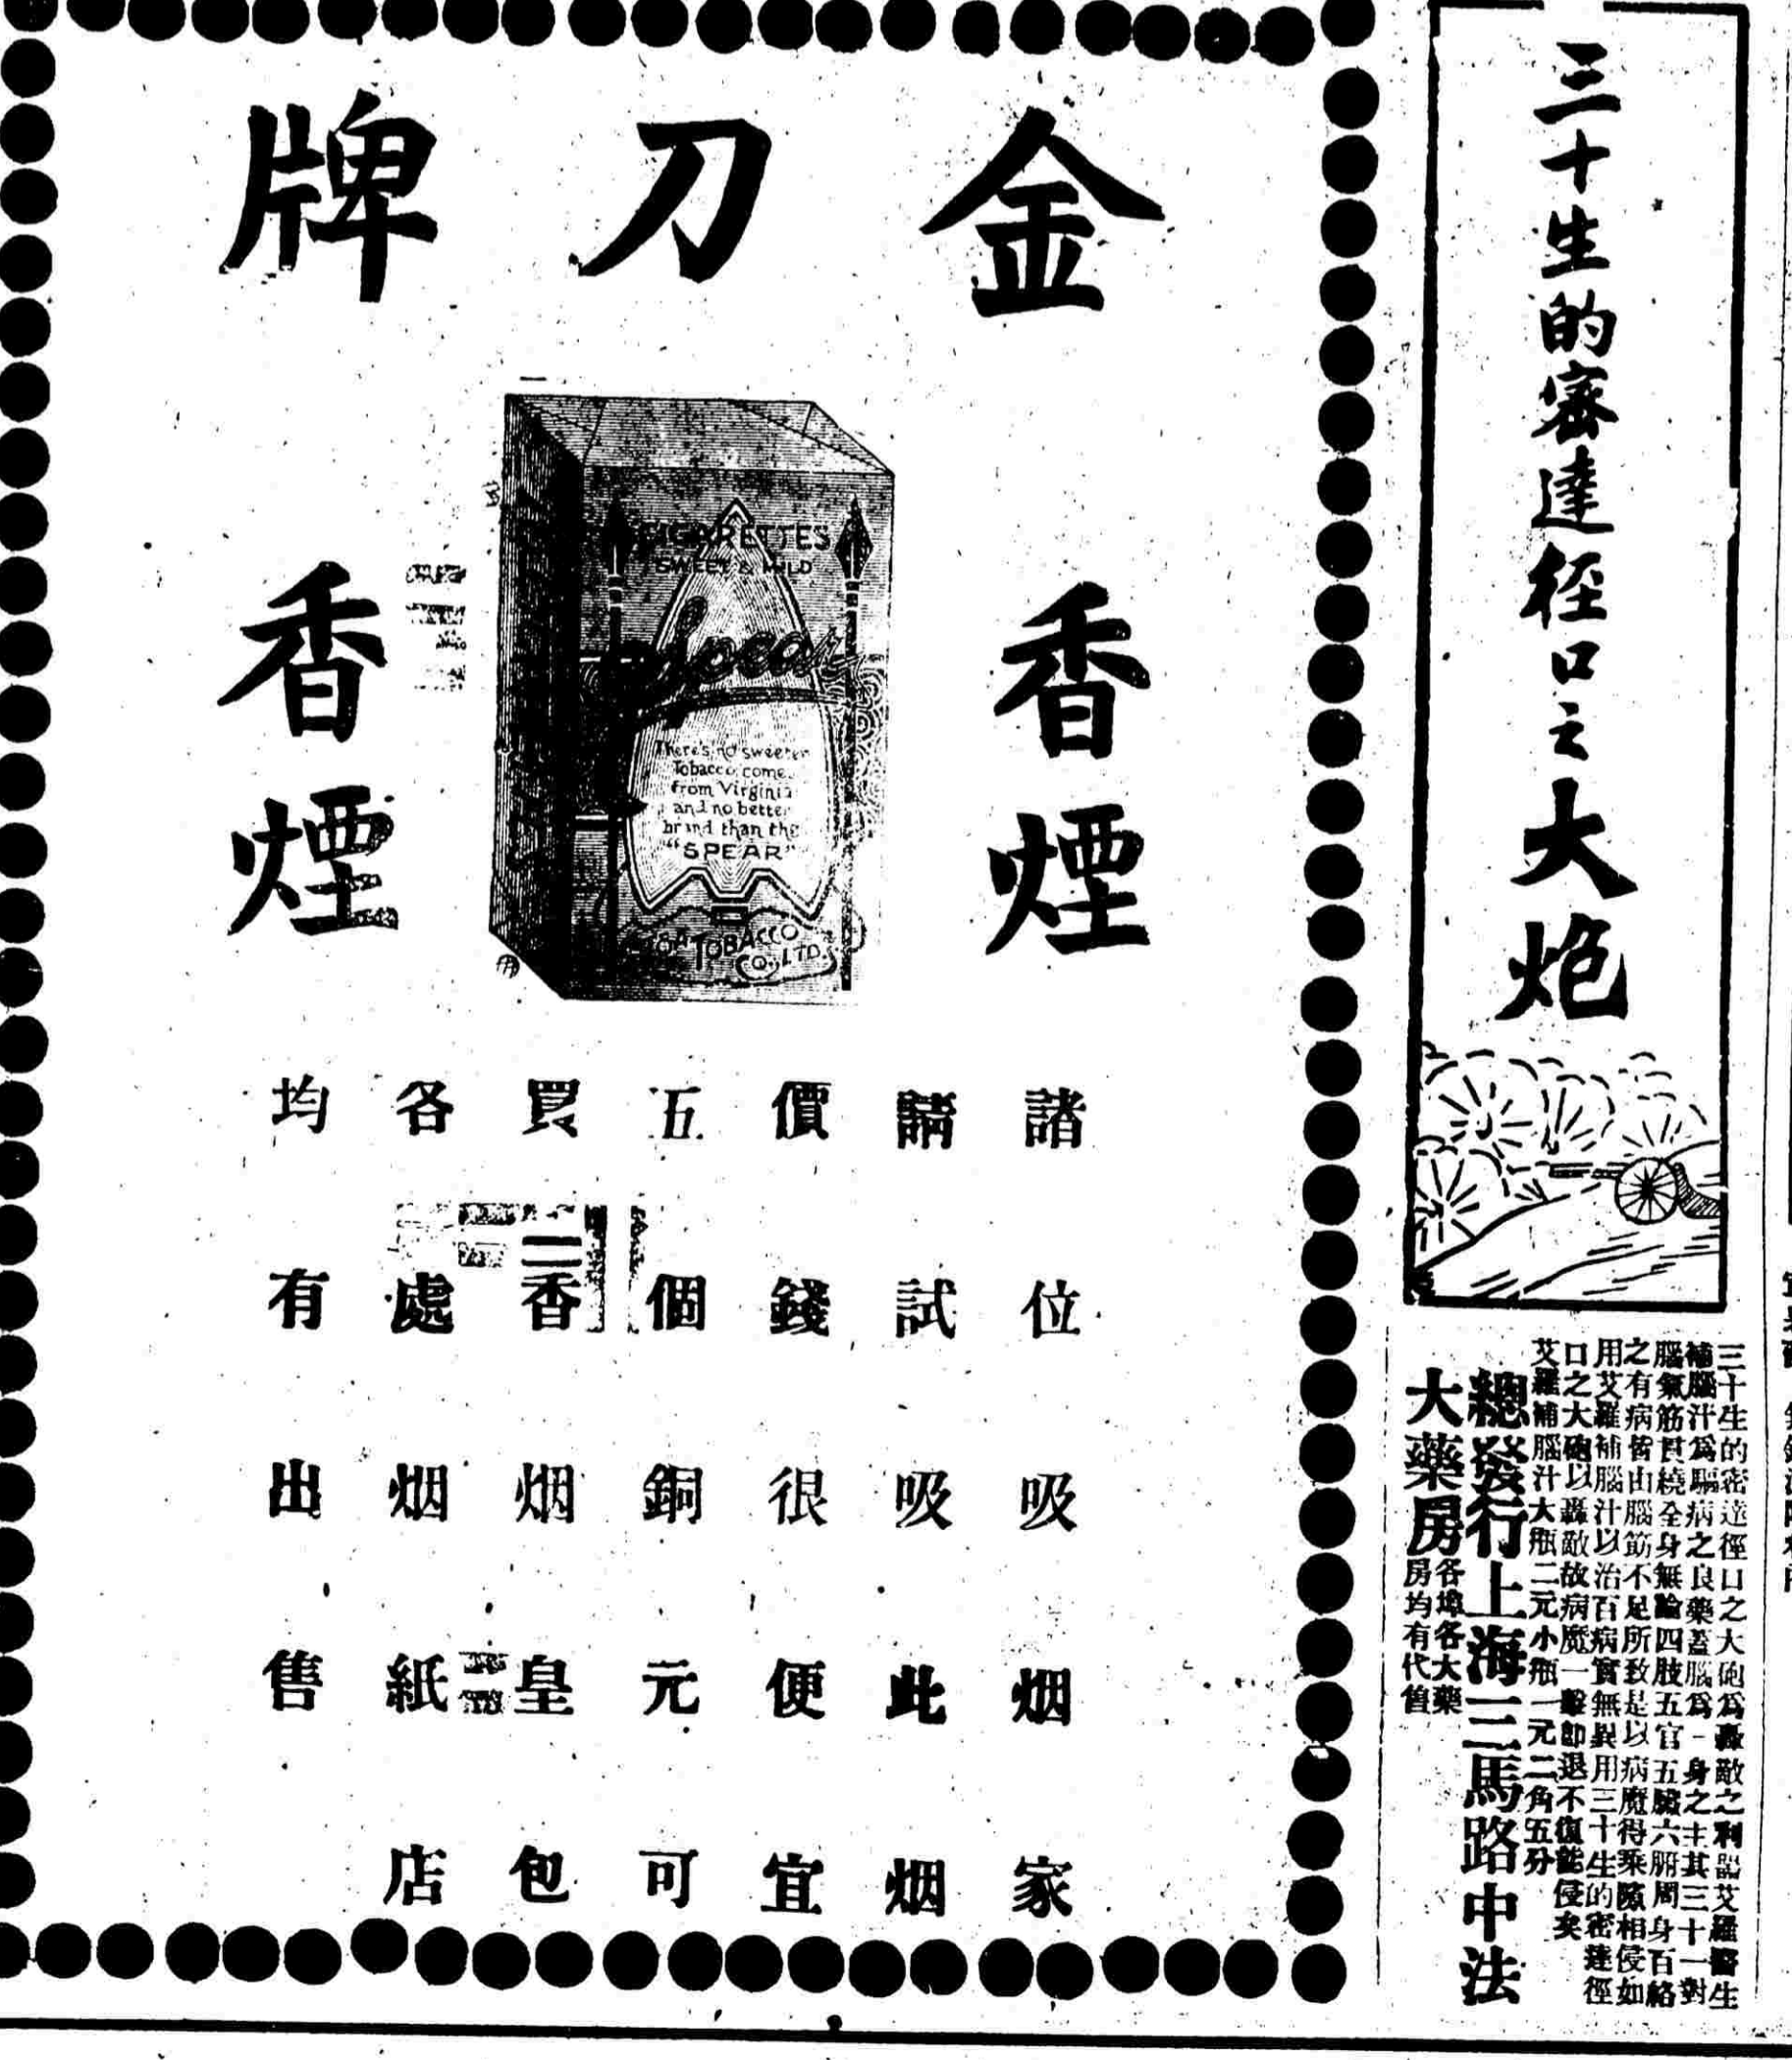 三十生的密達徑口之大炮
三十生的密達徑口之大砲爲轟敵之利器艾羅醫生
補腦汁爲驅病之良藥蓋腦爲一身之主其三十一對
腦氣筋貫繞全身無論四肢五官五臟六腑周身百絡
之有病皆由腦筋不足所致是以病魔得乘隙相侵如
用艾羅補腦汁以治百病實無異用三十生的密達徑
口之大砲以轟敵故病魔一擊卽退不復能侵矣
艾羅補腦汁大瓶二元小瓶一元二角五分
總發行上海三馬路中法
大藥房
各埠各大藥
房均有代售
金刀牌
香煙
香煙
CIGARETTES
SWEET & MILD
Spear
There's no sweeter
Tobacco come
from Virginia
and no better
brand than the
"SPEAR"
TOBACCO
CO., LTD.
諸位吸烟家
請試吸此烟
價錢很便宜
五個銅元可
買香烟皇包
各處烟紙店
均有出售